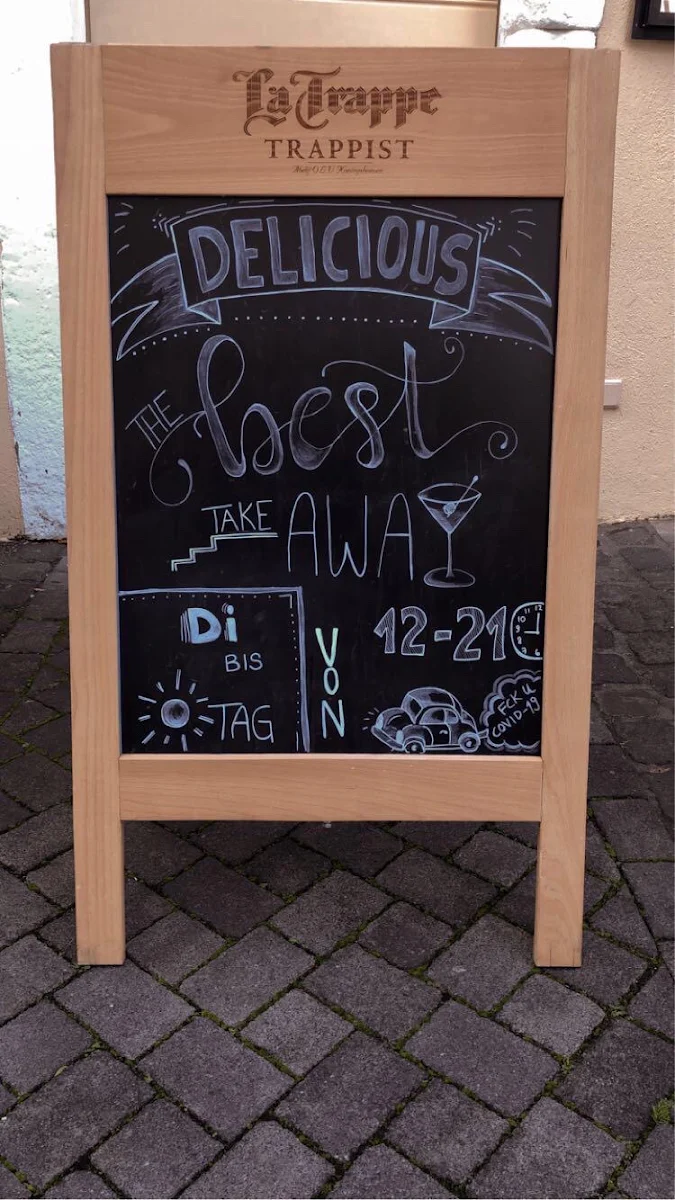 La Trappe
TRAPPIST
DELICIOUS
THE best
TAKE AWAY
Di
BIS
TAG
VON
12-21
FCK U
COVID-19